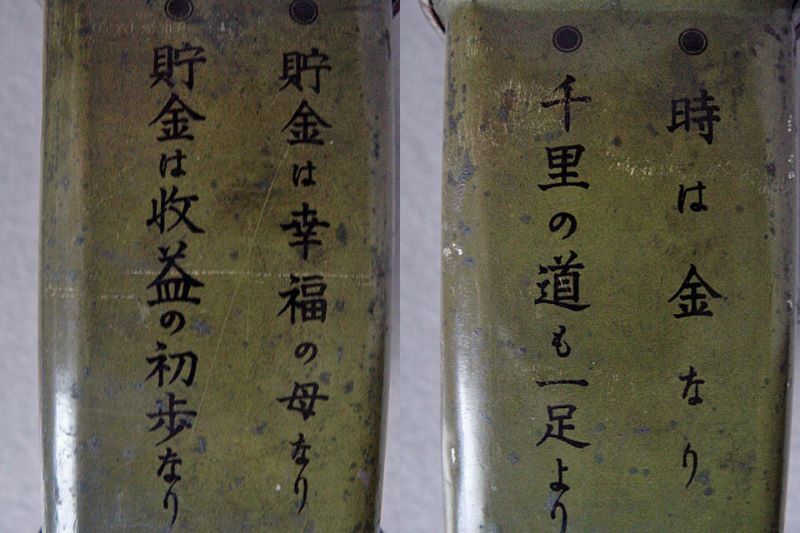 貯金は幸福の母なり
貯金は收益の初歩なり
時は金なり
千里の道も一足より